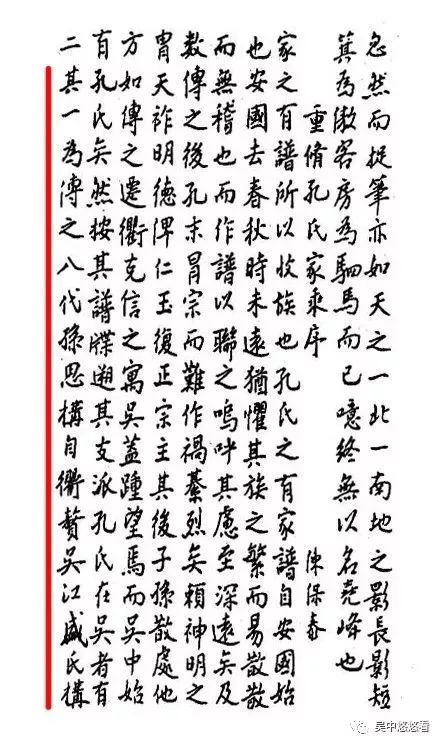 忽然而捉筆亦如天之一北一南地之影長影短
箕為傲客房為駟馬而已噫終無以名堯峰也
重脩孔氏家乘序　陳保泰
家之有譜所以收族也孔氏之有家譜自安國始
也安國去春秋時未遠猶懼其族之繁而易散散
而無稽也而作譜以聯之嗚呼其慮至深遠矣及
数傳之後孔末冒宗而難作禍綦烈矣賴神明之
胄天祚明德俾仁玉復正宗主其後子孫散處他
方如傳之遷衢克信之寓吳蓋踵望焉而吳中始
有孔氏矣然按其譜牒遡其支派孔氏在吳者有
二其一為傳之八代孫思構自衢贅吳江盛氏構
吴中悠悠看